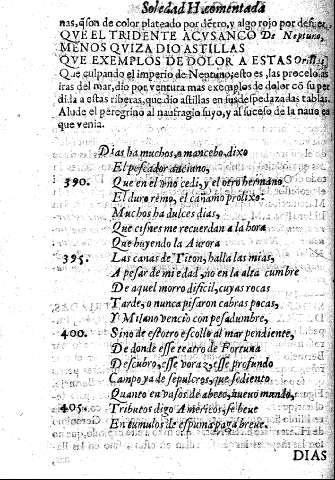 Soledad II. comentada
nas, q̃ son de color plateado por dẽtro, y algo rojo por defuera.
QVE EL TRIDENTE ACVSANDO De Neptuno,
MENOS QVIZA DIO ASTILLAS
QVE EXEMPLOS DE DOLOR A ESTAS Orillas
Que culpando el imperio de Neptuno, esto es, las procelosas
iras del mar, dio por ventura mas exemplos de dolor cõ su per
dida a estas riberas, que dio astillas en sus despedazadas tablas.
Alude el peregrino al naufragio suyo, y al suceso de la naue en
que venia.
Dias ha muchos, o mancebo, dixo
El pescador anciano,
390. Que en el vno cedi, y el otro hermano
El duro remo, el cañamo prolixo:
Muchos ha dulces dias,
Que cisnes me recuerdan a la hora
Que huyendo la Aurora
395. Las canas de Titon, halla las mias,
A pesar de mi edad, no en la alta cumbre
De aquel morro dificil, cuyas rocas
Tarde, o nunca pisaron cabras pocas,
Y Milano vencio con pesadumbre,
400. Sino de essotro escollo al mar pendiente,
De donde esse teatro de Fortuna
Descubro, esse voraz, esse profundo
Campo ya de sepulcros, que sediento
Quanto en vasos de abeto, nueuo mundo,
405. Tributos digo Americos, se beue
En tumulos de espuma paga breue.
DIAS